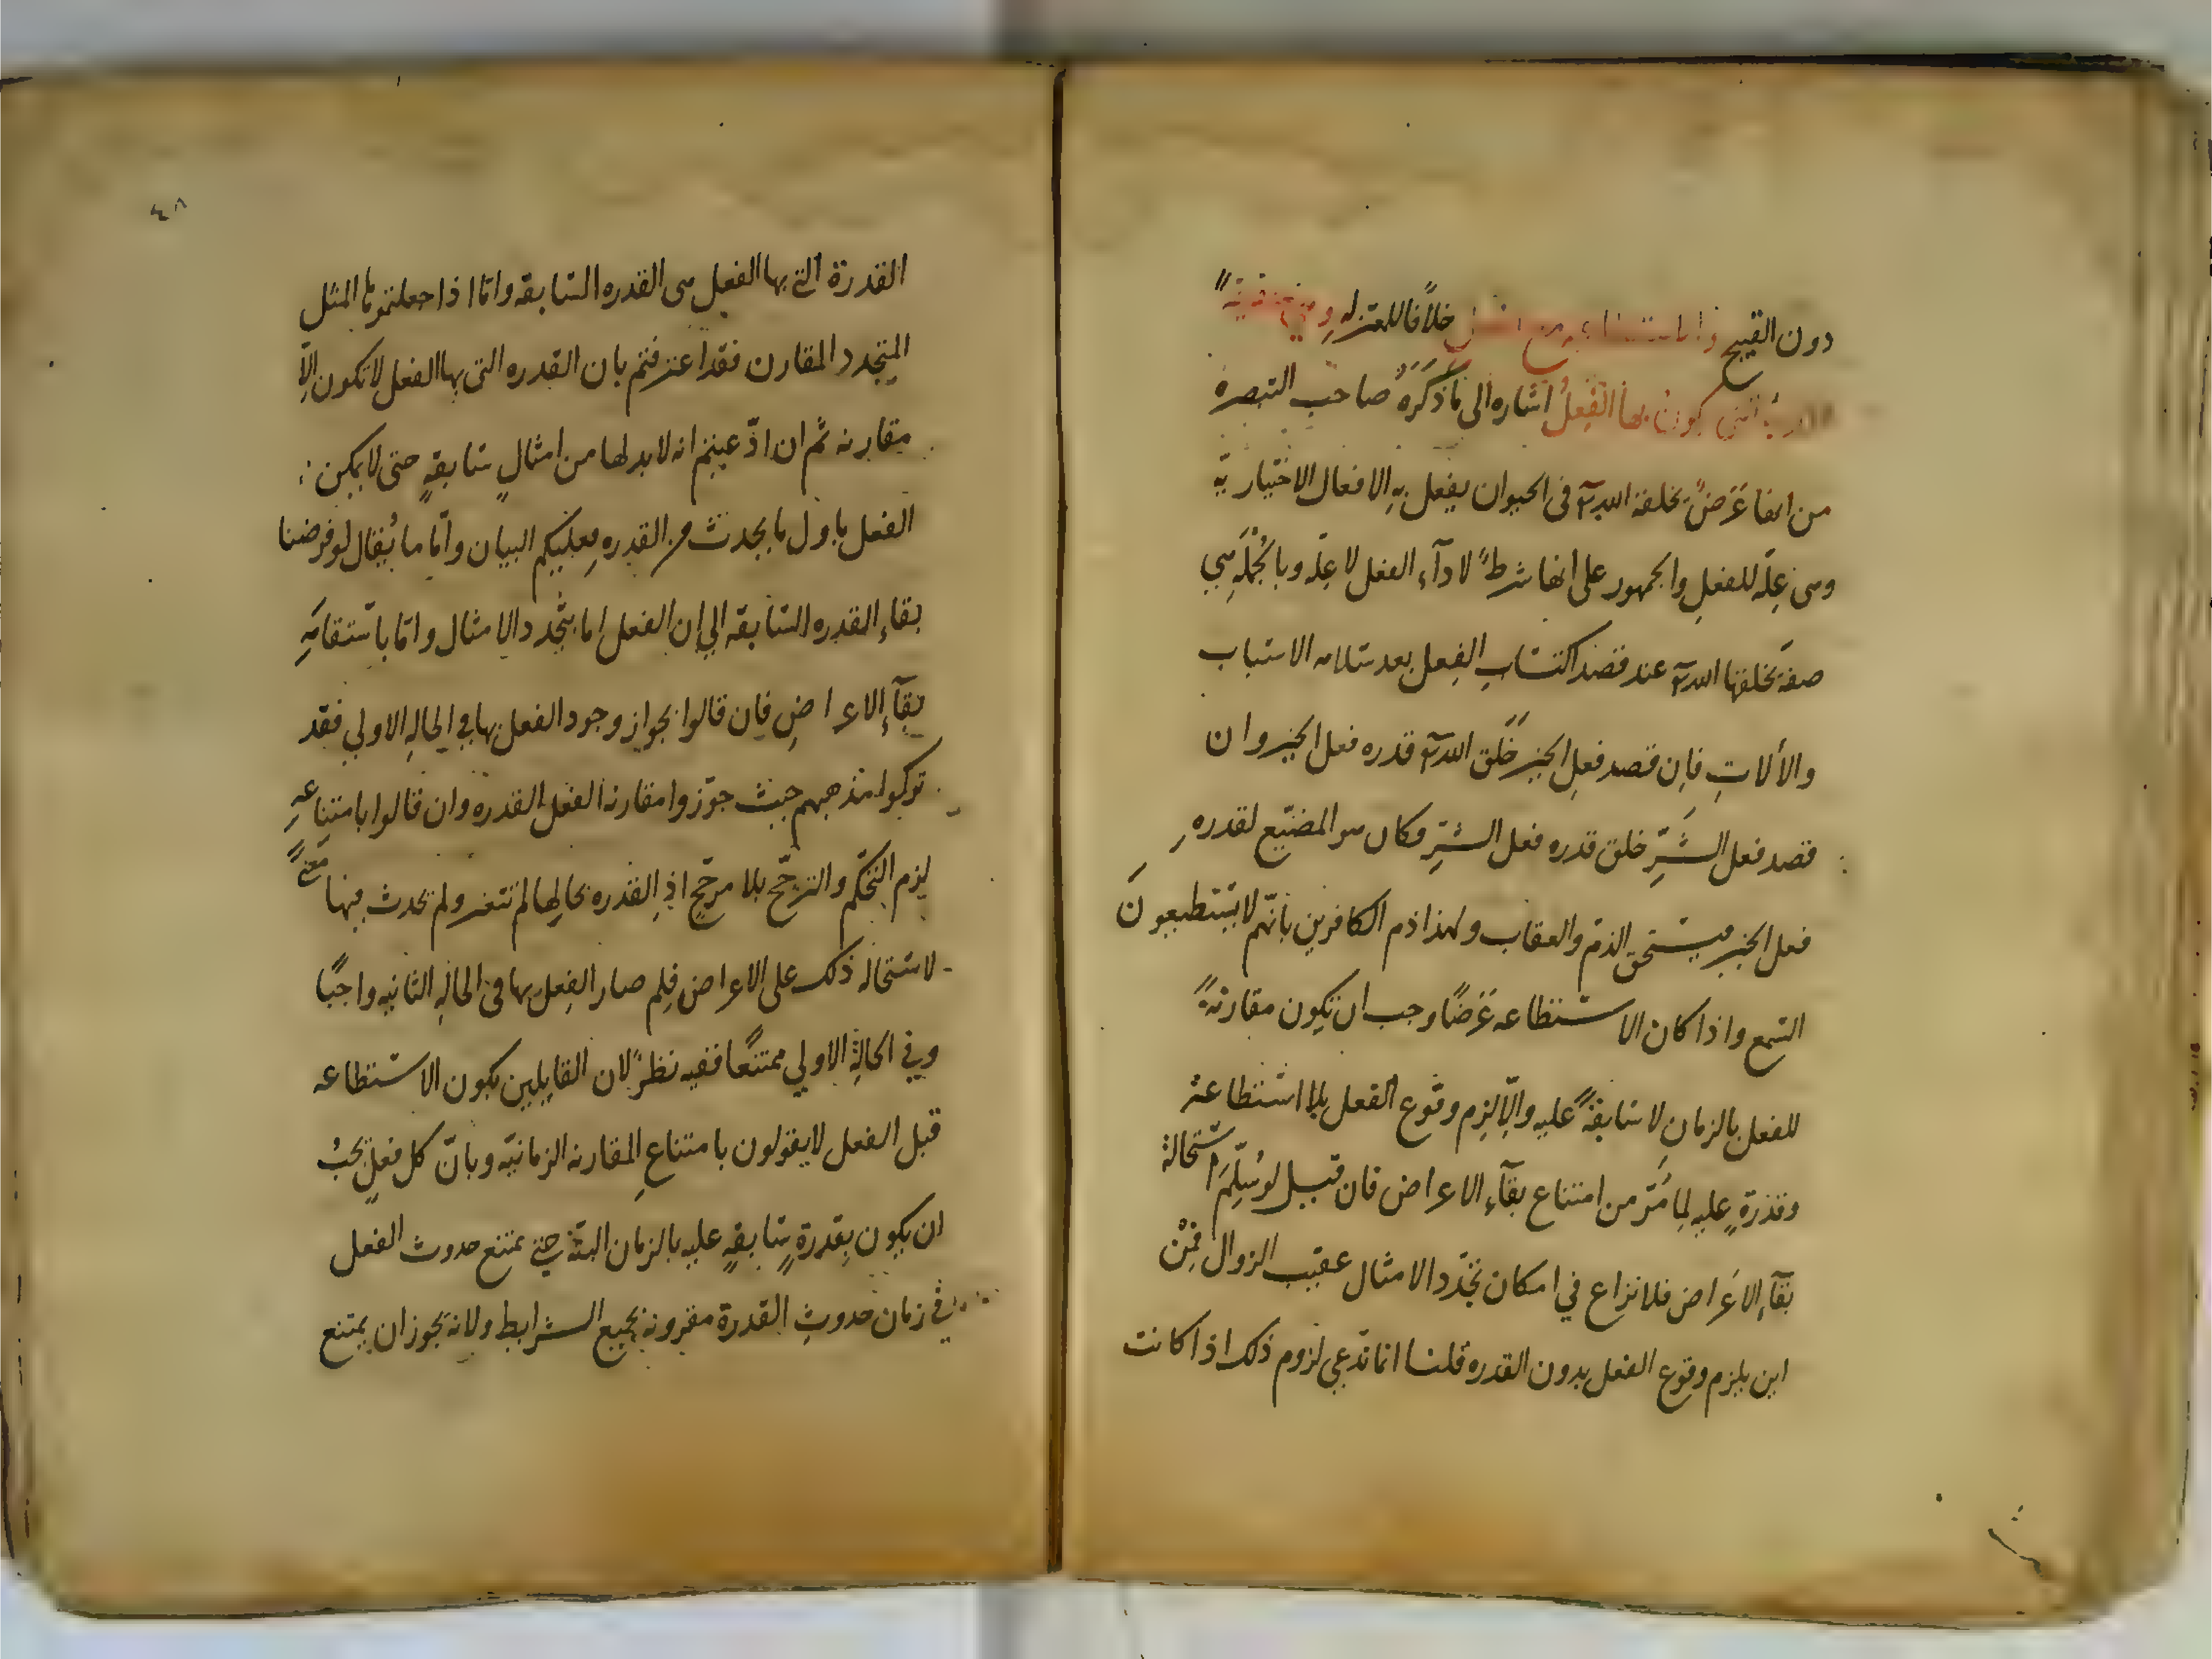 دون القبيح والاستطاعة مع الفعل خلافا للمعتزله وهي حقيقة
القدرة التي يكون بها الفعل اشاره الى ما ذكره صاحب التبصره
من انها عرض يخلقه الله تع في الحيوان يفعل به الافعال الاختيارية
وهي علة للفعل والجمهور على انها شرط لادآء الفعل لا علة وبالجملة هي
صفة يخلقها الله تع عند قصد اكتساب الفعل بعد سلامه الاسباب
والألات فإن قصد فعل الخير خلق الله تع قدره فعل الخير وان
قصد فعل الشر خلق قدره فعل الشر فكان هو المضيع لقدره
فعل الخير فيستحق الذم والعقاب ولهذا ذم الكافرين بانهم لا يستطيعون
السمع واذا كان الاستطاعه عرضا وجب ان تكون مقارنة
للفعل بالزمان لا سابقة عليه والا لزم وقوع الفعل بلا استطاعة
وقدرة عليه لما مر من امتناع بقآء الاعراض فان قيل لو سلم استحالة
بقآء الاعراض فلا نزاع في امكان تجدد الامثال عقيب الزوال فمن
اين يلزم وقوع الفعل بدون القدره قلنا انما ندعي لزوم ذلك اذا كانت
٤٨
القدرة التي بها الفعل هي القدره السابقه واما اذا جعلتموها المثل
المتجدد المقارن فقد اعترفتم بان القدره التي بها الفعل لا تكون الا
مقارنه ثم ان ادعيتم انه لا بد لها من امثال سابقة حتى لا يمكن
الفعل باول ما يحدث من القدره فعليكم البيان واما ما يقال لو فرضنا
بقاء القدره السابقه الي ان الفعل اما بتجدد الامثال واما باستقامة
بقآء الاعراض فان قالوا بجواز وجود الفعل بها في الحالة الاولي فقد
تركوا مذهبهم حيث جوزوا مقارنه الفعل القدره وان قالوا بامتناعه
لزم التحكم والترجح بلا مرجح اذ القدره بحالها لم تتغير ولم يحدث فيها معنى
لاستحاله ذلك على الاعراض فلم صار الفعل بها في الحالة الثانيه واجبا
وفي الحالة الاولي ممتنعا ففيه نظر لان القايلين بكون الاستطاعه
قبل الفعل لا يقولون بامتناع المقارنه الزمانيه وبان كل فعل يجب
ان يكون بقدرة سابقة عليه بالزمان البتة حتى يمتنع حدوث الفعل
في زمان حدوث القدرة مقرونه بجميع الشرايط ولانه يجوز ان يمتنع